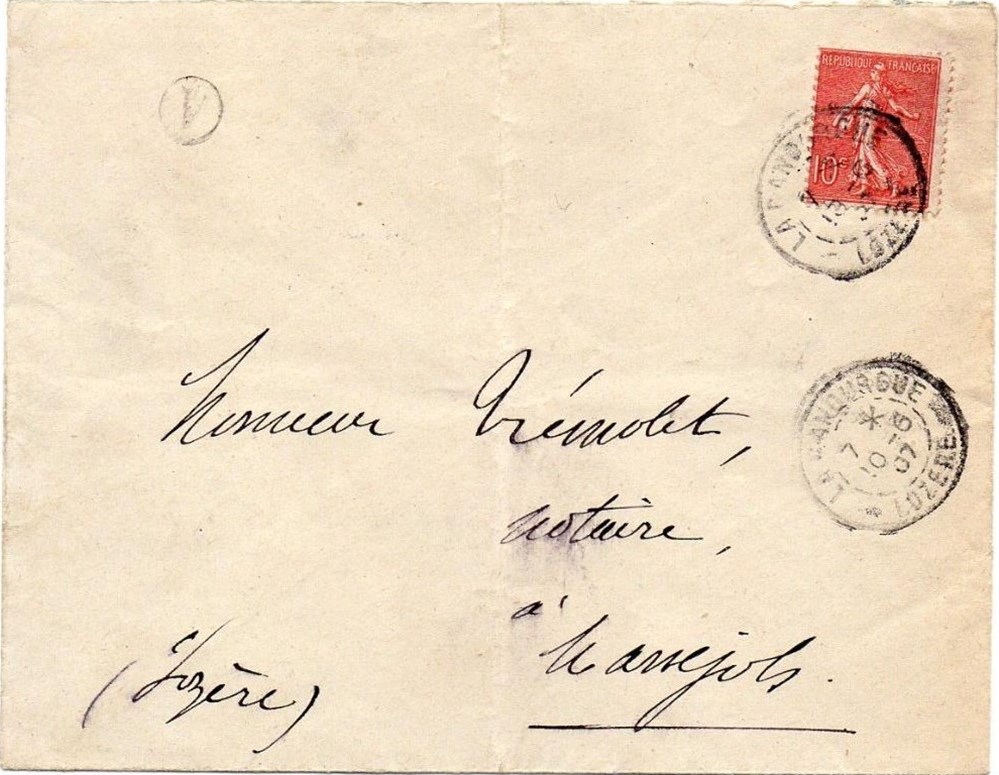 A
REPUBLIQUE FRANÇAISE
10c
LA CANOURGUE
LOZERE
LA CANOURGUE
7 -10
07
LOZERE
Monsieur Trémolet,
notaire,
à
Marvejols.
(Lozère)